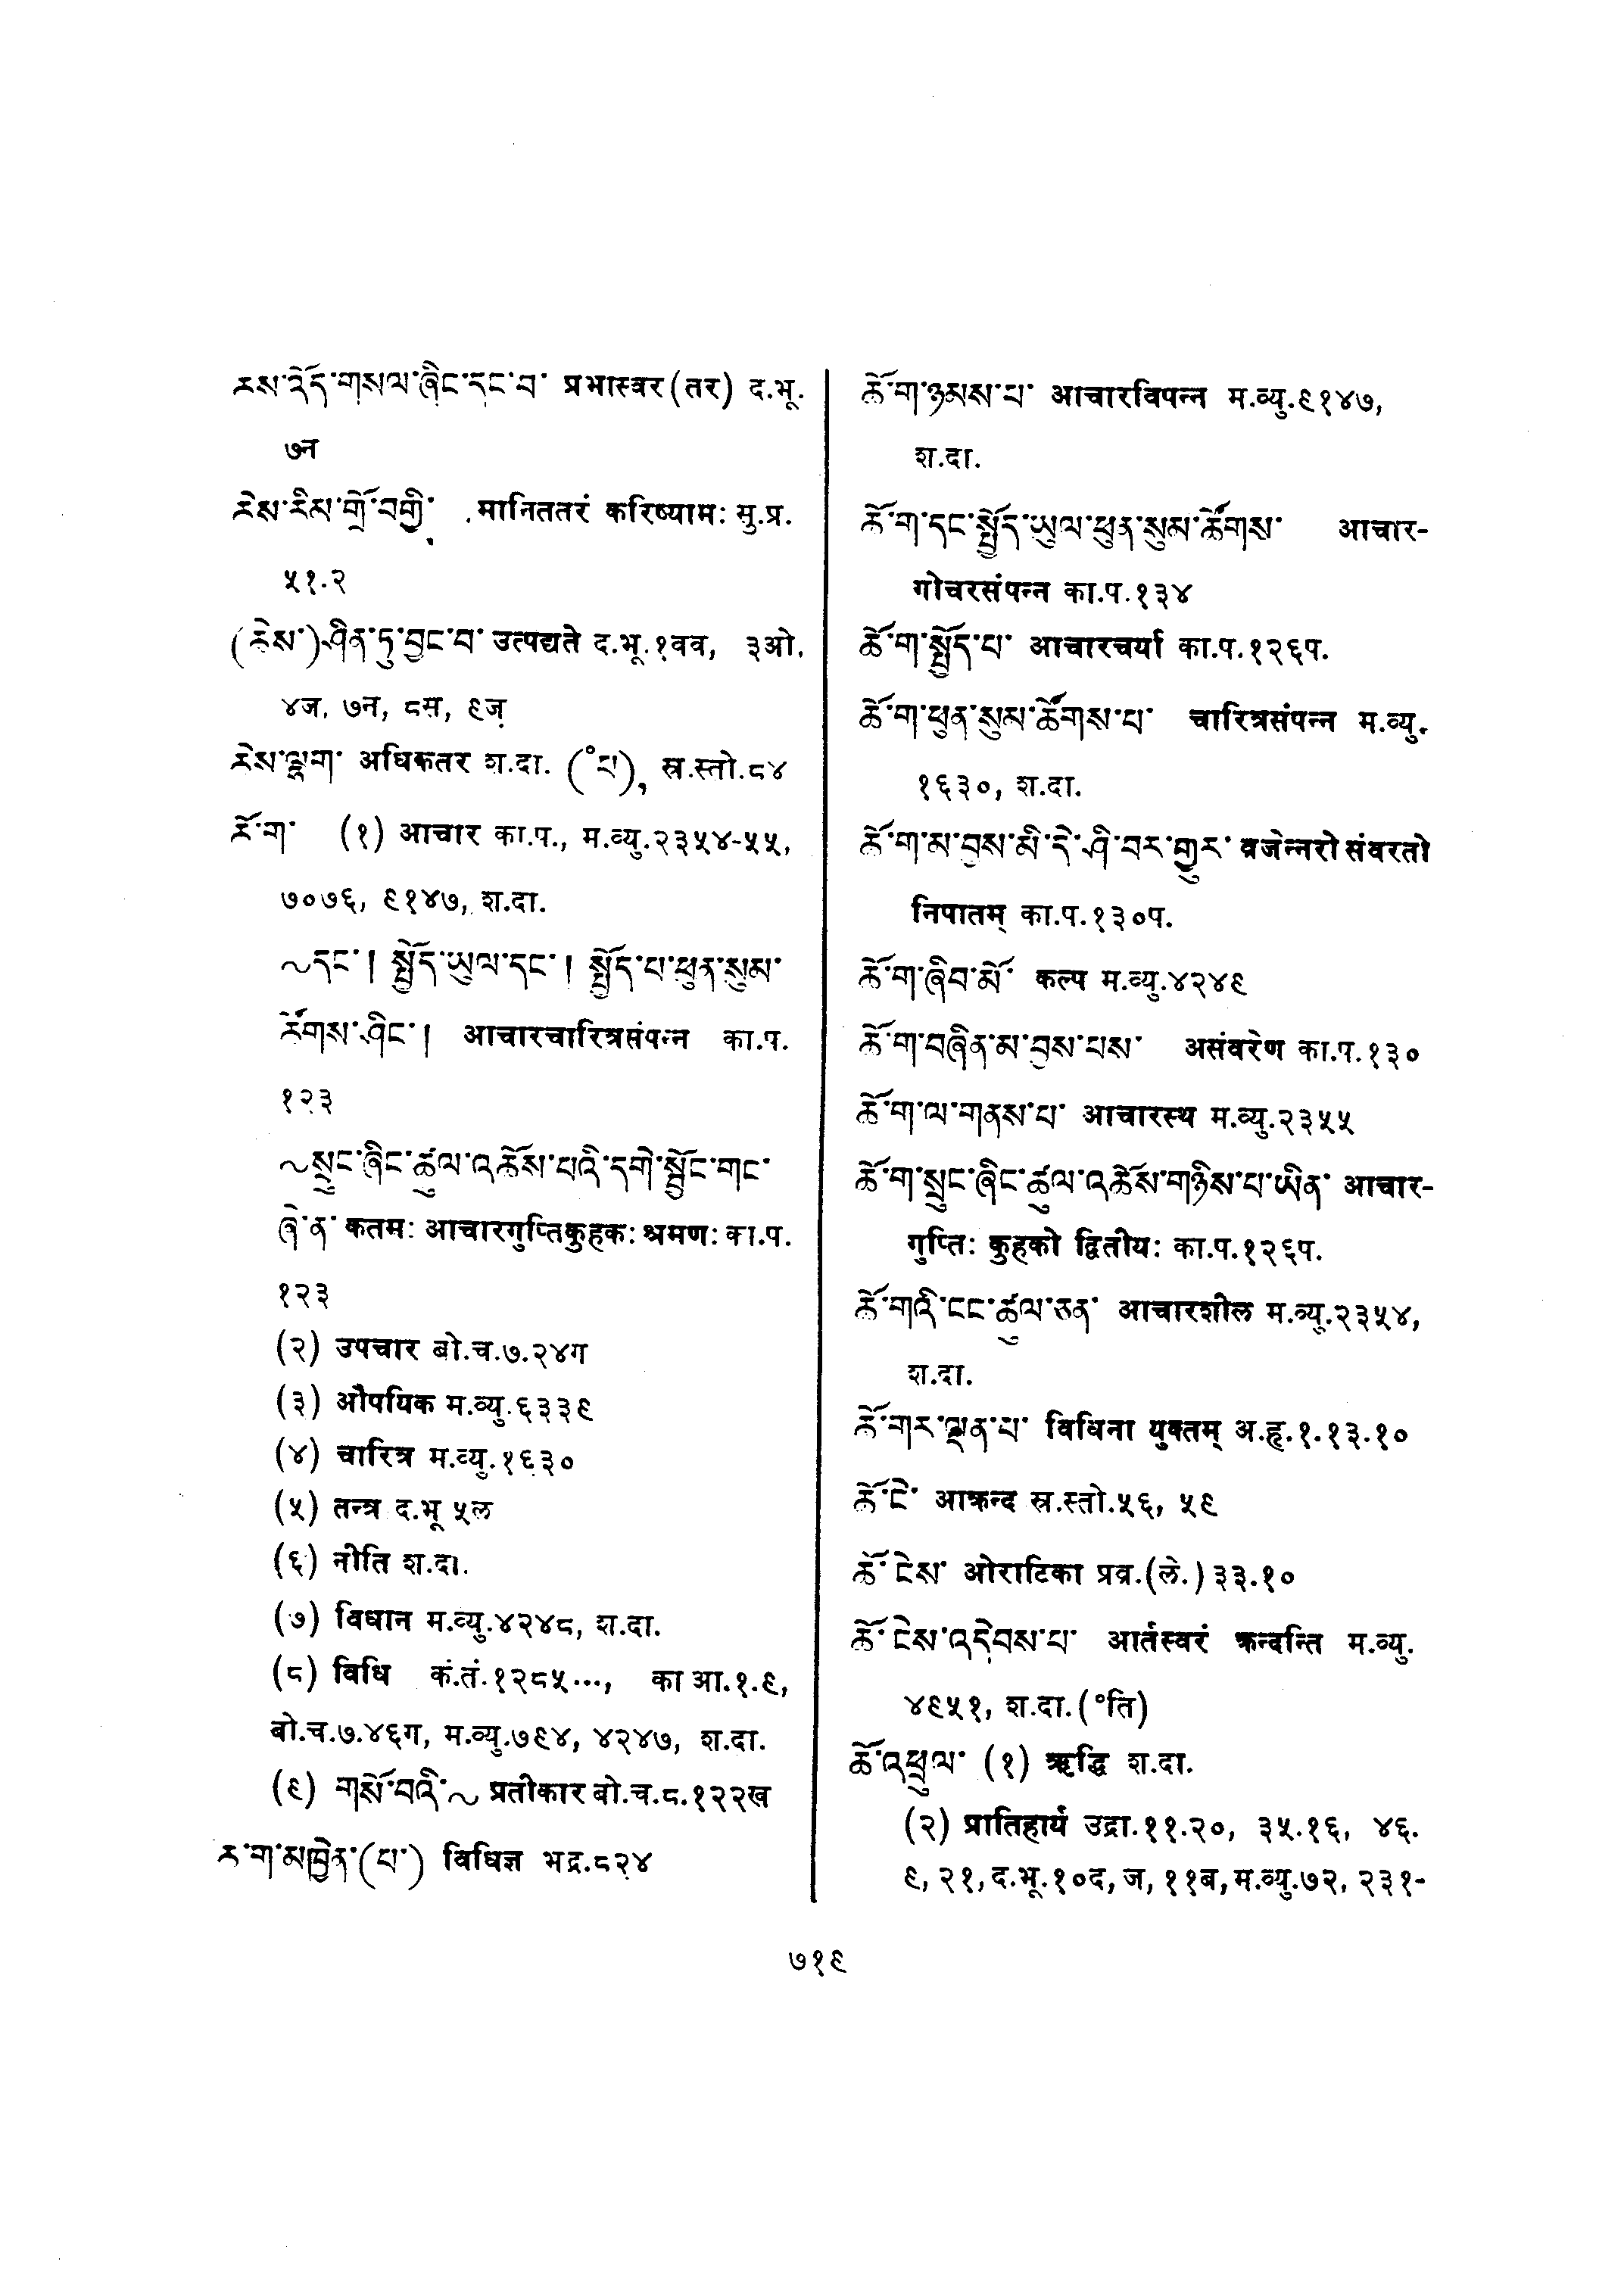 ཆེས་འོད་གསལ་ཞིང་དང་བ་ प्रभास्वर(तर) द.भू.
७न
ཆེས་རིམ་གྲོ་བགྱི་ मानिततरं करिष्यामः सु.प्र.
५१.२
(ཆེས་)ཤིན་ཏུ་བྱང་བ་ उत्पद्यते द.भू.१वव, ३ओ.
४ज, ७न, ८स, ९ज
ཆེས་ལྷག་ अधिकतर श.दा. (°པ), स्र.स्तो.८४
ཆོ་ག་ (१) आचार का.प., म.व्यु.२३५४-५५,
७०७६, ९१४७, श.दा.
~དང་། སྤྱོད་ཡུལ་དང་། སྤྱོད་པ་ཕུན་སུམ་
ཚོགས་ཤིང་། आचारचारित्रसंपन्न का.प.
१२३
~སྲུང་ཞིང་ཚུལ་འཆོས་པའི་དགེ་སྦྱོང་གང་
ཞེ་ན་ कतमः आचारगुप्तिकुहकः श्रमणः का.प.
१२३
(२) उपचार बो.च.७.२४ग
(३) औपयिक म.व्यु.६३३९
(४) चारित्र म.व्यु.१६३०
(५) तन्त्र द.भू ५ल
(६) नीति श.दा.
(७) विधान म.व्यु.४२४८, श.दा.
(८) विधि कं.तं.१२८५..., का आ.१.९,
बो.च.७.४६ग, म.व्यु.७९४, ४२४७, श.दा.
(९) གསོ་བའི་~ प्रतीकार बो.च.८.१२२ख
ཆོ་ག་མཁྱེན་(པ་) विधिज्ञ भद्र.८२४
ཆོ་ག་ཉམས་པ་ आचारविपन्न म.व्यु.९१४७,
श.दा.
ཆོ་ག་དང་སྤྱོད་ཡུལ་ཕུན་སུམ་ཚོགས་ आचार-
गोचरसंपन्न का.प.१३४
ཆོ་ག་སྤྱོད་པ་ आचारचर्या का.प.१२६प.
ཆོ་ག་ཕུན་སུམ་ཚོགས་པ་ चारित्रसंपन्न म.व्यु.
१६३०, श.दा.
ཆོ་ག་མ་བྱས་མི་དེ་ཤི་བར་གྱུར་ व्रजेन्नरो संवरतो
निपातम् का.प.१३०प.
ཆོ་ག་ཞིབ་མོ་ कल्प म.व्यु.४२४९
ཆོ་ག་བཞིན་མ་བྱས་པས་ असंवरेण का.प.१३०
ཆོ་ག་ལ་གནས་པ་ आचारस्थ म.व्यु.२३५५
ཆོ་ག་སྲུང་ཞིང་ཚུལ་འཆོས་གཉིས་པ་ཡིན་ आचार-
गुप्तिः कुहको द्वितीयः का.प.१२६प.
ཆོ་གའི་ངང་ཚུལ་ཅན་ आचारशील म.व्यु.२३५४,
श.दा.
ཆོ་གར་ལྡན་པ་ विधिना युक्तम् अ.हृ.१.१३.१०
ཆོ་ངེ་ आक्रन्द स्र.स्तो.५६, ५९
ཆོ་ངེས་ ओराटिका प्रव्र.(ले.) ३३.१०
ཆོ་ངེས་འདེབས་པ་ आर्तस्वरं क्रन्दन्ति म.व्यु.
४९५१, श.दा.(°ति)
ཆོ་འཕྲུལ་ (१) ऋद्धि श.दा.
(२) प्रातिहार्य उद्रा.११.२०, ३५.१६, ४६.
९, २१, द.भू.१०द, ज, ११ब, म.व्यु.७२, २३१-
७१९